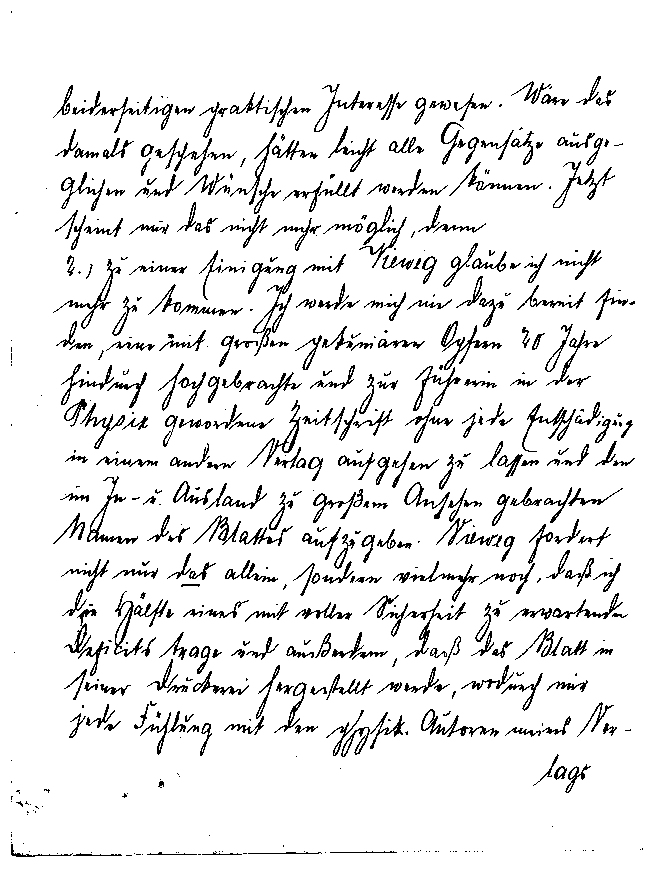 beiderseitigen praktischen Interesse gewesen. Wäre das
damals geschehen, hätten leicht alle Gegensätze ausge-
glichen und Wünsche erfüllt werden können. Jetzt
scheint mir das nicht mehr möglich, denn
2.) zu einer Einigung mit Vieweg glaube ich nicht
mehr zu kommen. Ich werde mich nie dazu bereit fin-
den, eine mit großen pekuniären Opfern 20 Jahre
hindurch hochgebrachte und zur Führerin in der
Physik gewordene Zeitschrift ohne jede Entschädigung
in einem andern Verlag aufgehen zu lassen und den
im In- u. Ausland zu großem Ansehen gebrachten
Namen des Blattes aufzugeben. Vieweg fordert
nicht nur das allein, sondern vielmehr noch, daß ich
die Hälfte eines mit voller Sicherheit zu erwartenden
Deficits trage und außerdem, daß das Blatt in
seiner Druckerei hergestellt werde, wodurch mir
jede Fühlung mit den physik. Autoren meines Ver-
lags